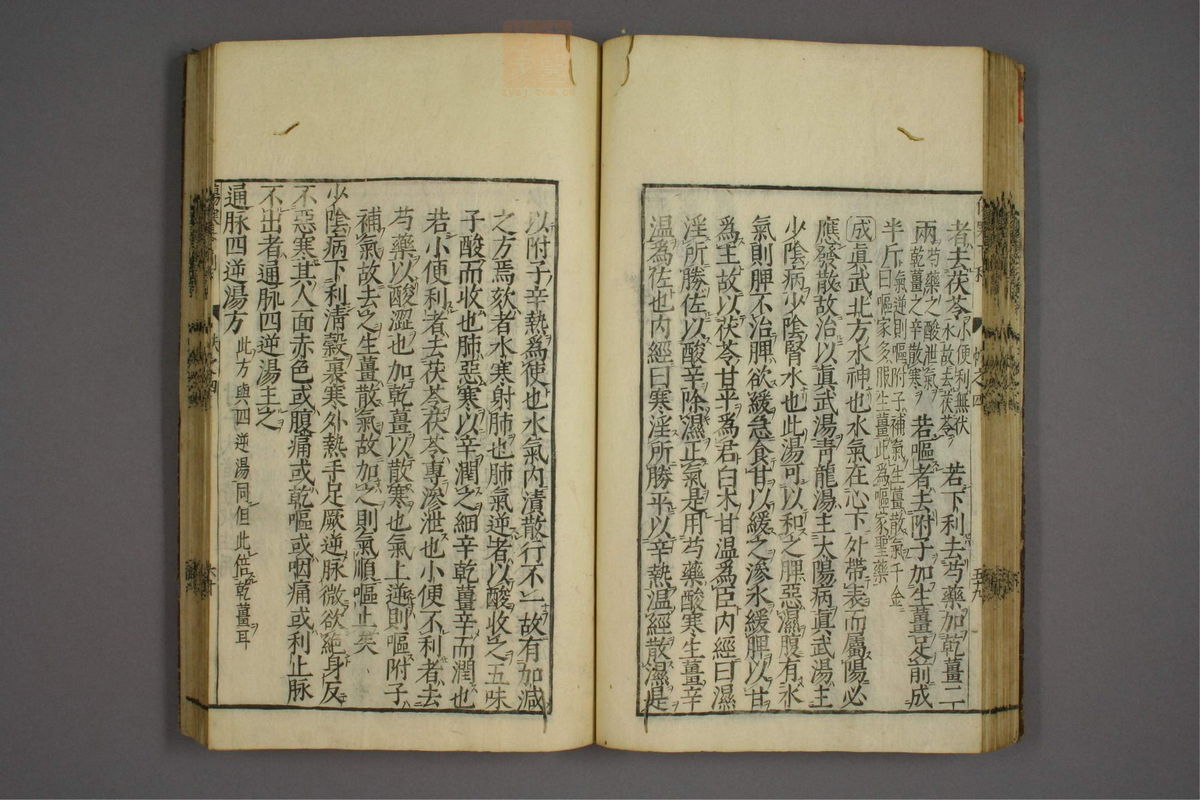 者去茯苓小便利無伏水故去茯苓若下利去芍藥加乾薑二
兩芍藥之酸泄氣乾薑之辛散寒若嘔者去附子加生薑足前成
半斤氣逆則嘔附子補氣生薑散氣千金曰嘔家多服生薑此為嘔家聖藥
成眞武北方水神也水氣在心下外帶表而屬陽必
應發散故治以眞武湯青龍湯主太陽病眞武湯主
少陰病少陰腎水也此湯可以和之脾惡濕腹有水
氣則脾不治脾欲緩急食甘以緩之滲水緩脾以甘
爲主故以茯苓甘平爲君白朮甘温爲臣内經曰濕
淫所勝佐以酸辛除濕正氣是用芍藥酸寒生薑辛
温爲佐也内經曰寒淫所勝平以辛熱温經散濕是
以附子辛熱爲使也水氣内漬散行不一故有加減
之方焉欬者水寒射肺也肺氣逆者以酸收之五味
子酸而收也肺惡寒以辛潤之細辛乾薑辛而潤也
若小便利者去茯苓茯苓專滲泄也小便不利者去
芍藥以酸澀也加乾薑以散寒也氣上逆則嘔附子
補氣故去之生薑散氣故加之則氣順嘔止矣
少陰病下利清穀裏寒外熱手足厥逆脉微欲絶身反
不惡寒其人面赤色或腹痛或乾嘔或咽痛或利止脉
不出者通脉四逆湯主之
通脉四逆湯方此方與四逆湯同但此倍乾薑耳